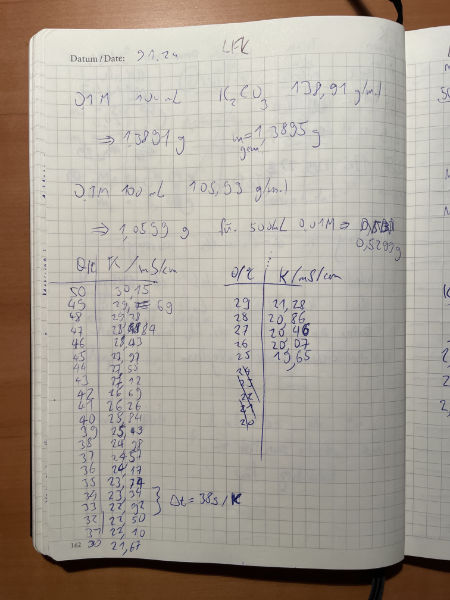 Datum/Date: 21.24
LFK
0,1 M 100 mL K2CO3 138,91 g/mol
⇒ 1,3891 g m gem = 1,3895 g
0,1M 100 mL 105,99 g/mol
⇒ 1,0599 g für 500mL 0,01M ⇒
0,5299g
ϑ/°C K / mS/cm
50 30,15
49 29,69
48 29,28
47 28,84
46 28,43
45 27,97
44 27,55
43 27,12
42 26,69
41 26,26
40 25,84
39 25,43
38 24,98
37 24,57
36 24,17
35 23,74
34 23,34
33 22,92
32 22,50
31 22,10
30 21,67
Δt = 38s/K
ϑ/°C K/mS/cm
29 21,28
28 20,86
27 20,46
26 20,07
25 19,65
24
23
22
21
20
162